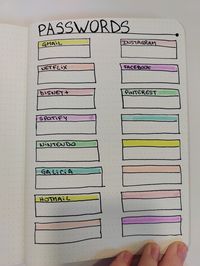 PASSWORDS
GMAIL
INSTAGRAM
NETFLIX
FACEBOOK
DISNEY+
PINTEREST
SPOTIFY
NINTENDO
GALICIA
HOTMAIL